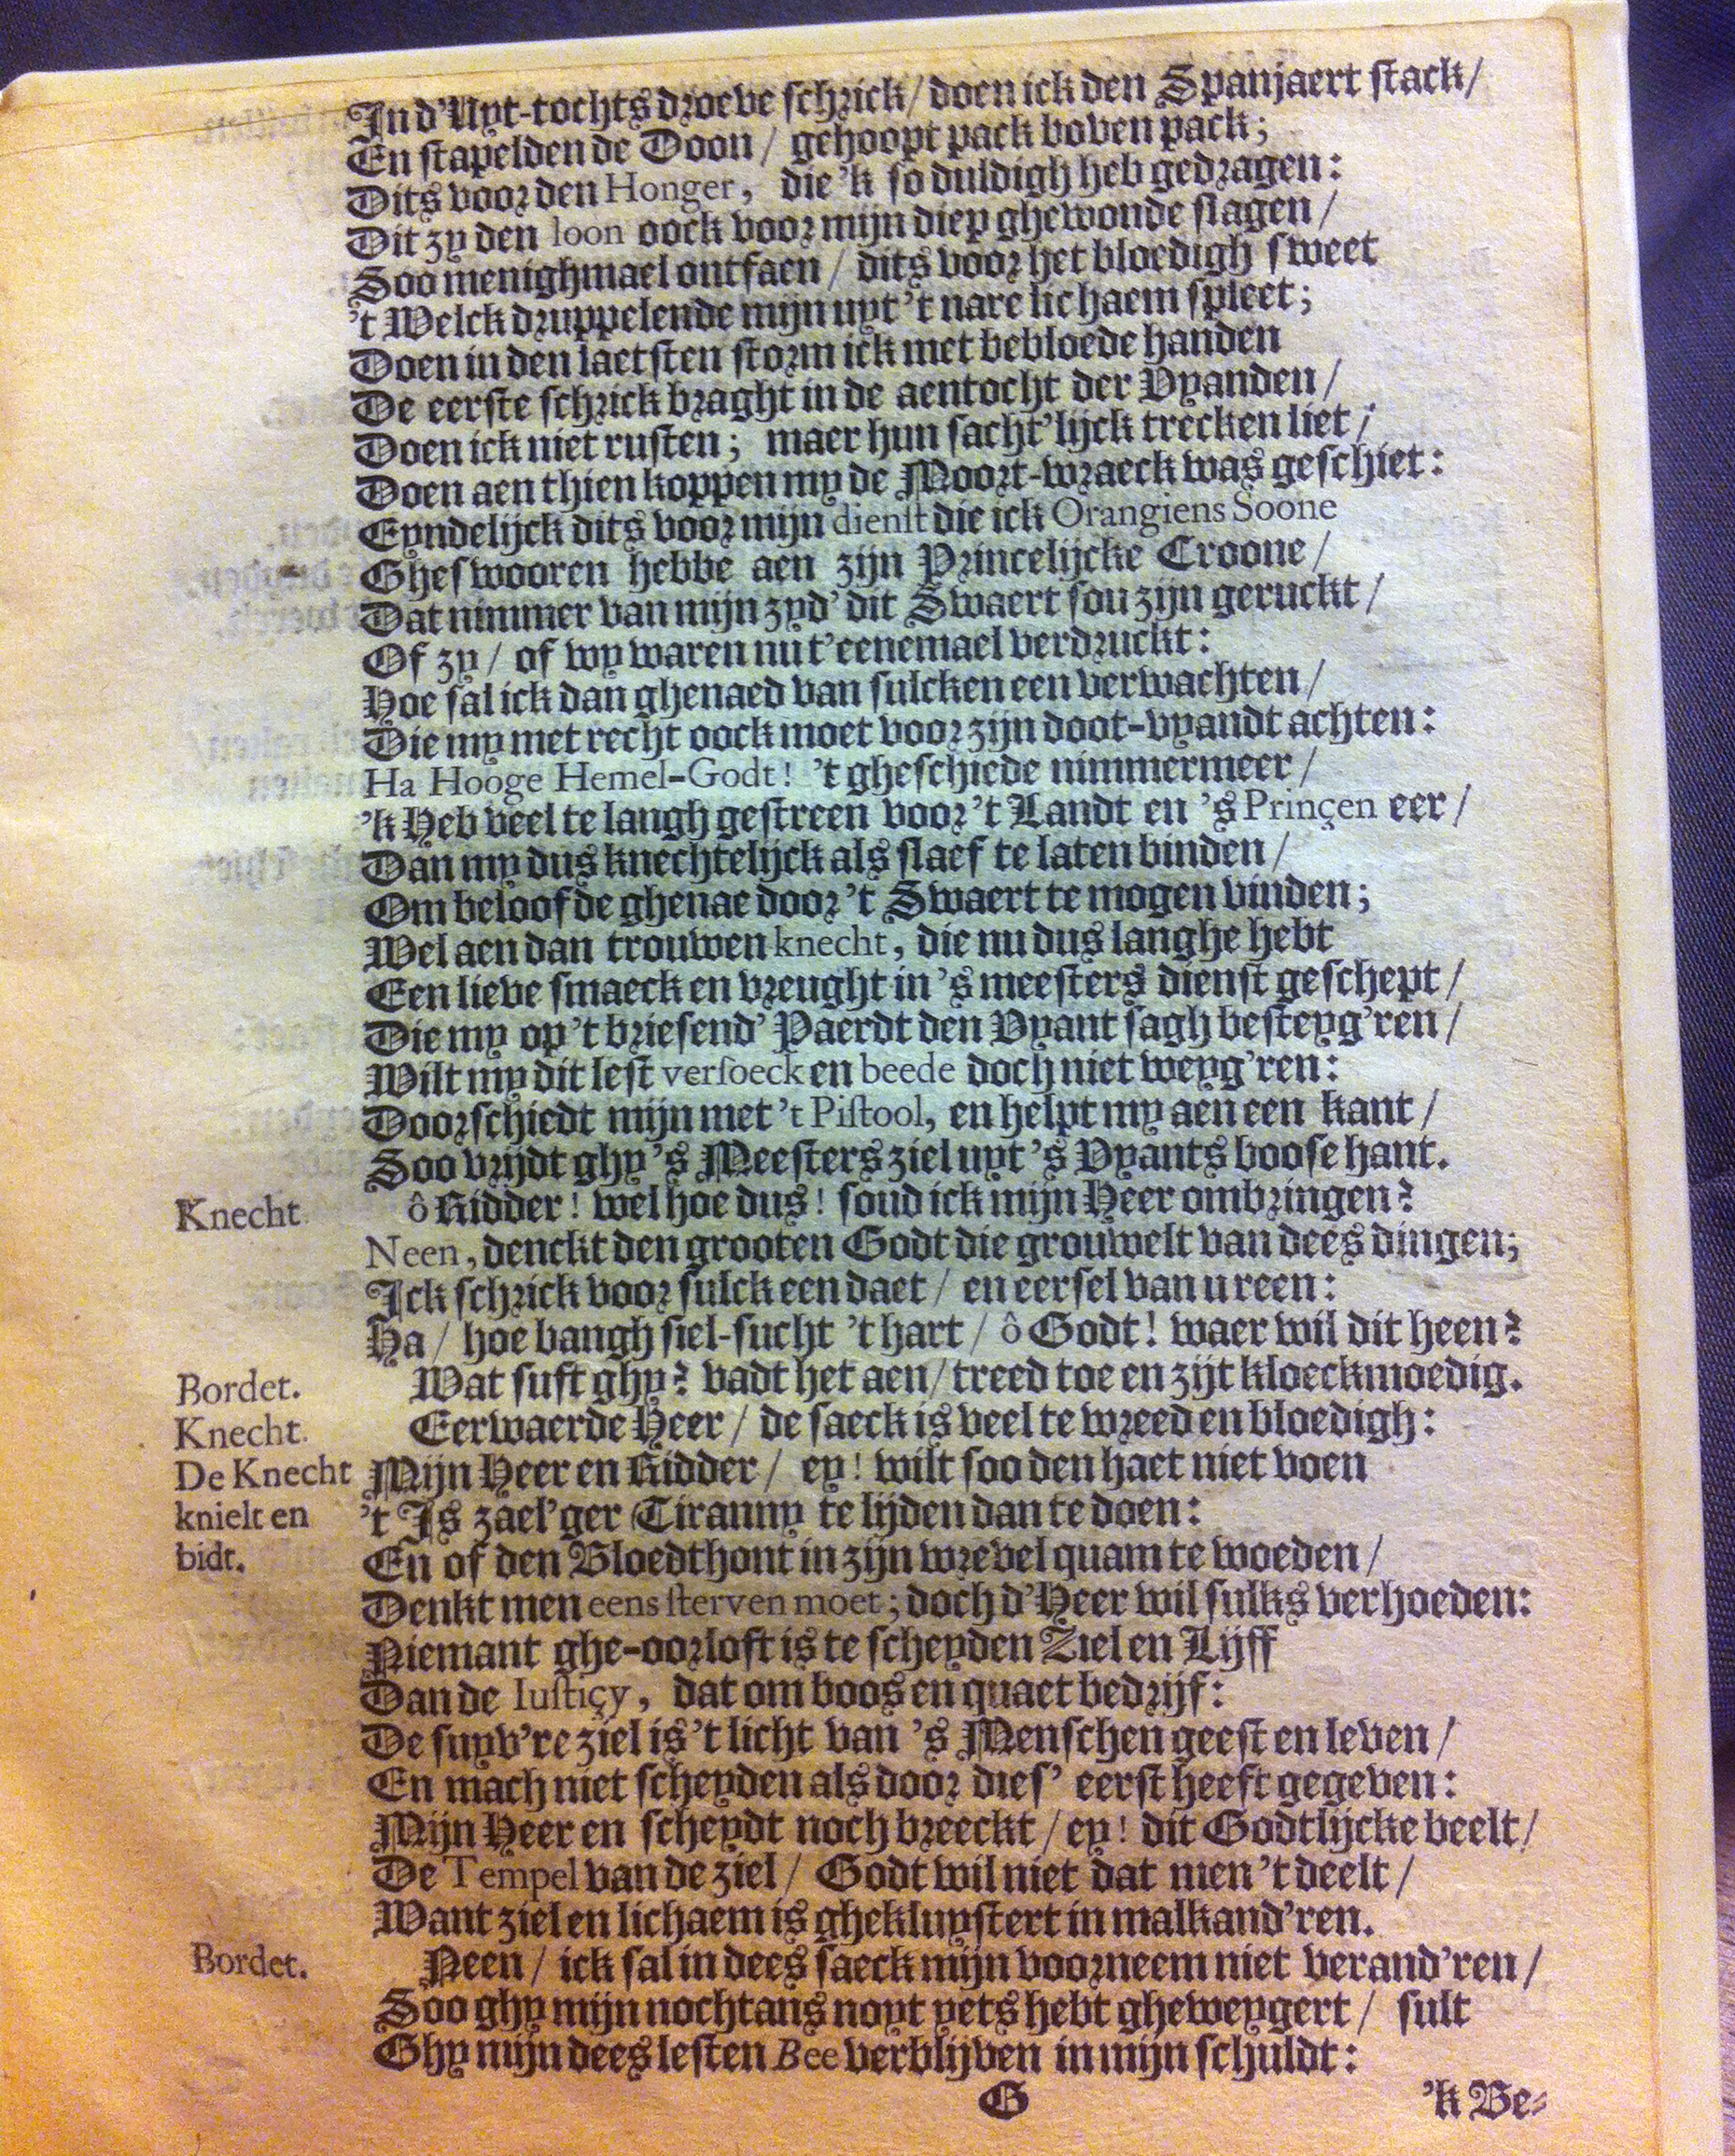 In d'Uyt-tochts droeve schrick / doen ick den Spanjaert stack /
En stapelden de Doon / gehoopt pack boven pack;
Dits voor den Honger, die 'k so duldigh heb gedragen:
Dit zy den loon oock voor mijn diep ghewonde slagen /
Soo menighmael ontfaen / dits voor het bloedigh sweet
't Welck druppelende mijn uyt 't nare lichaem spleet;
Doen in den laetsten storm ick met bebloede handen
De eerste schrick braght in de aentocht der Vyanden /
Doen ick niet rusten; maer hun sacht'lijck trecken liet /
Doen aen thien koppen my de Moort-wraeck was geschiet:
Eyndelijck dits voor mijn dienst die ick Orangiens Soone
Gheswooren hebbe aen zijn Princelijcke Croone /
Dat nimmer van mijn zyd' dit Swaert sou zijn geruckt /
Of zy / of wy waren nu t'eenemael verdruckt:
Hoe sal ick dan ghenaed van sulcken een verwachten /
Die my met recht oock moet voor zijn doot-vyandt achten:
Ha Hooge Hemel-Godt! 't gheschiede nimmermeer /
'k Heb veel te langh gestreen voor 't Landt en 's Prinçen eer /
Dan my dus knechtelijck als slaef te laten binden /
Om beloofde ghenae door 't Swaert te mogen vinden;
Wel aen dan trouwen knecht, die nu dus langhe hebt
Een lieve smaeck en vreught in 's meesters dienst geschept /
Die my op 't briesend' Paerdt den Vyant sagh besteyg'ren /
Wilt my dit lest versoeck en beede doch niet weyg'ren:
Doorschiedt mijn met 't Pistool, en helpt my aen een kant /
Soo vrijdt ghy 's Meesters ziel uyt 's Vyants boose hant.
Knecht. ô Ridder! wel hoe dus! soud ick mijn Heer ombringen?
Neen, denckt den grooten Godt die grouwelt van dees dingen;
Ick schrick voor sulck een daet / en eersel van u reen:
Ha / hoe bangh siel-sucht 't hart / ô Godt! waer wil dit heen?
Bordet. Wat suft ghy? vadt het aen / treed toe en zijt kloeckmoedig.
Knecht. Eerwaerde Heer / de saeck is veel te wreed en bloedigh:
De Knecht Mijn Heer en Ridder / ey! wilt soo den haet niet voen
knielt en 't Is zael'ger Tiranny te lijden dan te doen:
bidt. En of den Bloedthont in zijn wrevel quam te woeden /
Denkt men eens sterven moet; doch d'Heer wil sulks verhoeden:
Niemant ghe-oorloft is te scheyden Ziel en Lijff
Dan de Iustiçy, dat om boos en quaet bedrijf:
De suyv're ziel is 't licht van 's Menschen geest en leven /
En mach niet scheyden als door dies' eerst heeft gegeven:
Mijn Heer en scheydt noch breeckt / ey! dit Godtlijcke beelt /
De Tempel van de ziel / Godt wil niet dat men 't deelt /
Want ziel en lichaem is ghekluystert in malkand'ren.
Bordet. Neen / ick sal in dees saeck mijn voorneem niet verand'ren /
Soo ghy mijn nochtans noyt yets hebt gheweygert / sult
Ghy mijn dees lesten Bee verblijven in mijn schuldt:
G 'k Be-